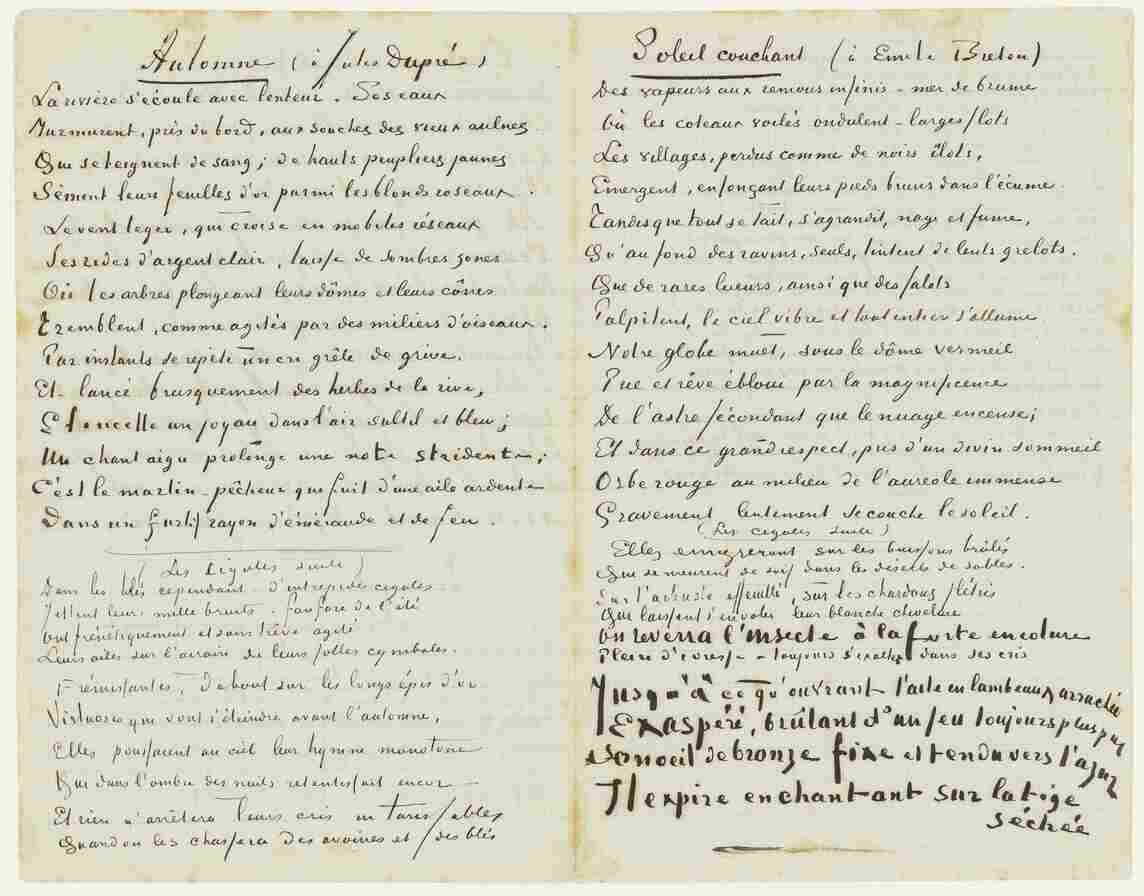 Automne (à Jules Dupré)
La rivière s'écoule avec lenteur. Ses eaux
Murmurent, près du bord, aux souches des vieux aulnes
Qui se teignent de sang; de hauts peupliers jaunes
Sèment leurs feuilles d'or parmi les blonds roseaux.
Le vent leger, qui croise en mobiles réseaux
Ses rides d'argent clair, laisse de sombres zones
Où les arbres plongeant leurs dômes et leurs cônes
Tremblent, comme agités par des milliers d'oiseaux.
Par instants se repète un cri grêle de grive,
Et lancé brusquement des herbes de la rive,
Etincelle un joyau dans l'air subtil et bleu;
Un chant aigu prolonge une note stridente;
C'est le martin-pêcheur qui fuit d'une aile ardente
Dans un furtif rayon d'émeraude et de feu.
(Les Cigales suite)
Dans les blés cependant d'intrepides cigales
Jettent leurs mille bruits. fanfare de l'été
Ont frénétiquement et sans trêve agité
Leurs ailes sur l'airain de leurs folles cymbales.
Frémissantes, debout sur les longs épis d'or
Virtuoses qui vont s'éteindre avant l'automne,
Elles poussaient au ciel leur hymne monotone
Qui dans l'ombre des nuits retentissait encor —
Et rien n'arrêtera leurs cris intarissables
Quand on les chassera des avoines et des blés
Soleil couchant (à Emile Breton)
Des vapeurs aux remous infinis - mer de brume
Où les coteaux voilés ondulent - larges flots
Les villages, perdus comme de noirs îlots,
Emergent, enfonçant leurs pieds bruns dans l'écume.
Tandis que tout se tait, s'agrandit, nage et fume,
Qu'au fond des ravins, seuls, tintent de lents grelots.
Que de rares lueurs, ainsi que des falots
Palpitent, le ciel vibre et tout entier s'allume
Notre globe muet, sous le dôme vermeil
Pue et rêve ébloui par la magnificence
De l'astre fécondant que le nuage encense;
Et dans ce grand respect, pris d'un divin sommeil
Orbe rouge au milieu de l'aureole immense
Gravement lentement se couche le soleil.
(Les cigales suite)
Elles emigreront sur les buissons brûlés
Qui se meurent de soif dans les déserts de sables.
Sur l'arbuste effeuillé, sur les chardons flétris
Qui laissent s'envoler leur blanche chevelure
On reverra l'insecte à la forte encolure
Plein d'ivresse - toujours s'exalter dans ses cris
Jusqu'à ce qu'ouvrant l'aile en lambeaux arrachée
Exaspéré, brûlant d'un feu toujours plus pur
Son oeil de bronze fixe et tendu vers l'azur
Il expire en chantant sur la tige
séchée